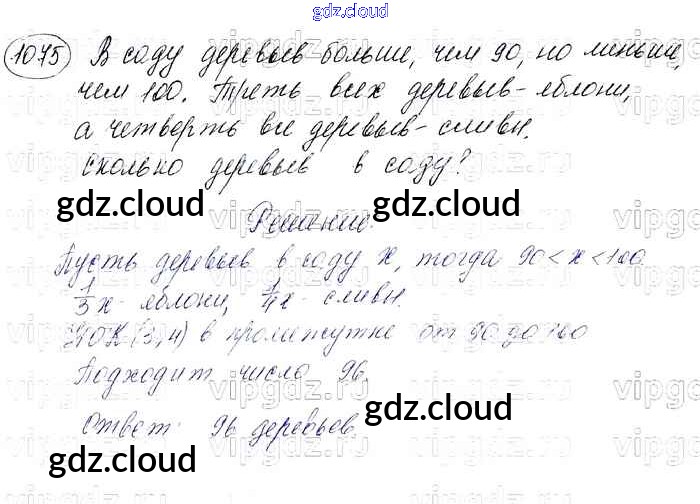 gdz.cloud
1075 В саду деревьев больше, чем 90, но меньше,
чем 100. Треть всех деревьев - яблони,
а четверть все деревьев - сливы.
Сколько деревьев в саду?
gdz.cloud gdz.cloud
Решение:
Пусть деревьев в саду x, тогда 90 < x < 100
1/3 x - яблони, 1/4 x - сливы.
НОК (3,4) в промежутке от 90 до 100
Подходит число 96.
gdz.cloud
Ответ: 96 деревьев.
gdz.cloud